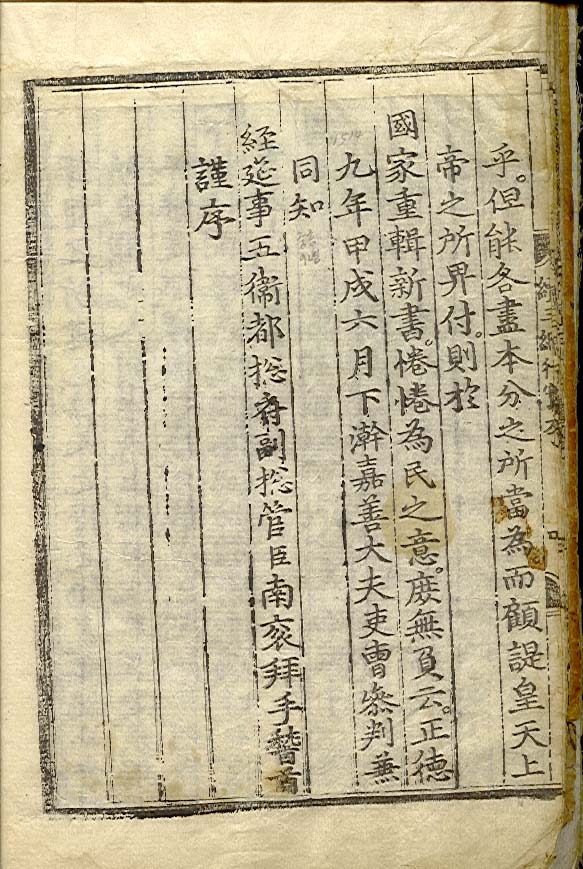 續三綱行實序
乎。但能各盡本分之所當為而顧諟皇天上
帝之所畀付。則於
國家重輯新書。惓惓為民之意。庶無負云。正德
1514
九年甲戌六月下澣嘉善大夫吏曹叅判兼
同知
経筵事五衛都捴府副捴管臣南袞拜手稽首
謹序